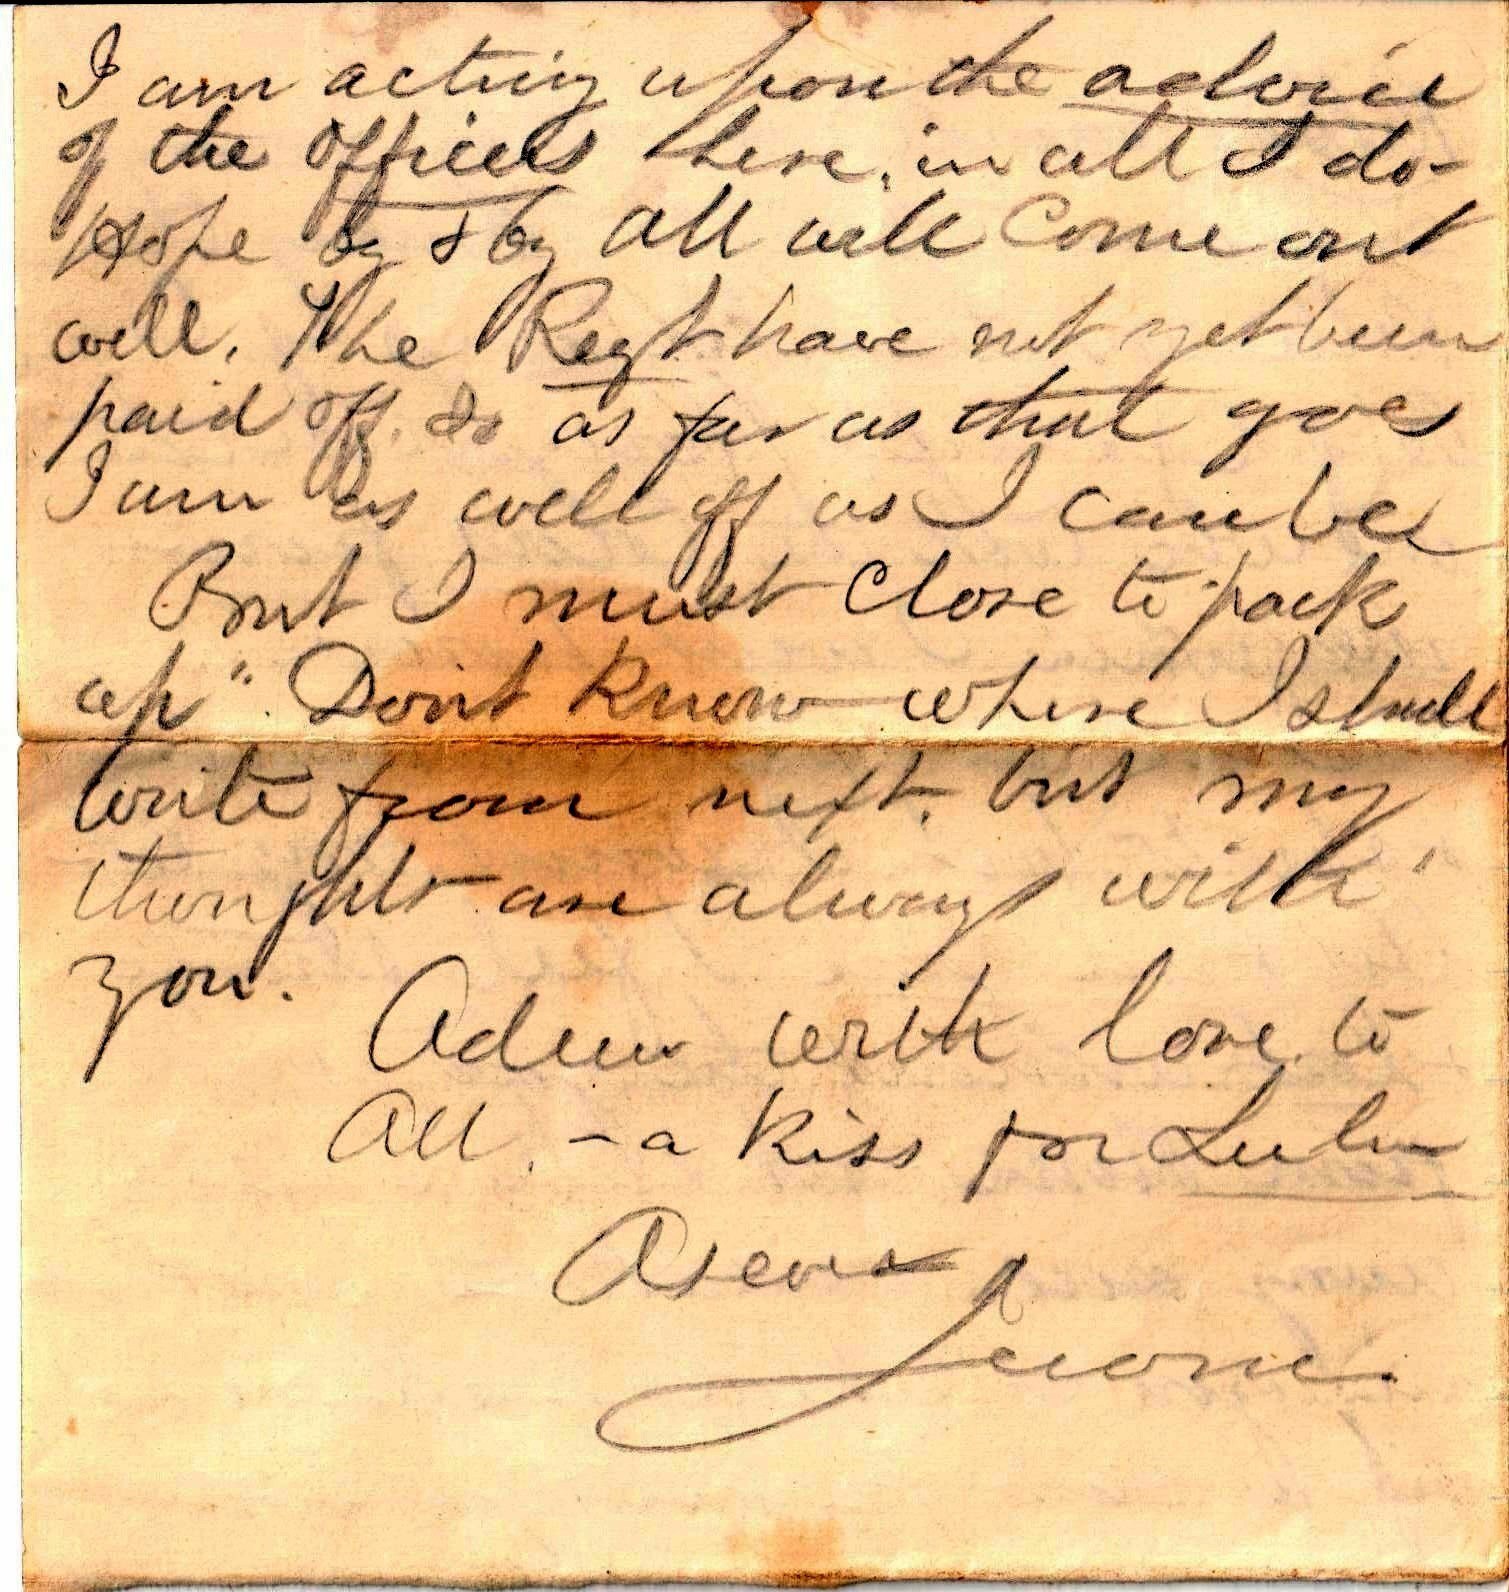 I am acting upon the advice
of the officers here, in all I do-
Hope by & by all will Come out
well. The Regt have not yet been
paid off. So as far as that goes
I am as well off as I can be
But I must Close to "pack
up". Don't Know where I shall
write from next, but my
thoughts are always with
you.
Adieu with love to
All, - a Kiss for Lulu
As ever
Jerome.